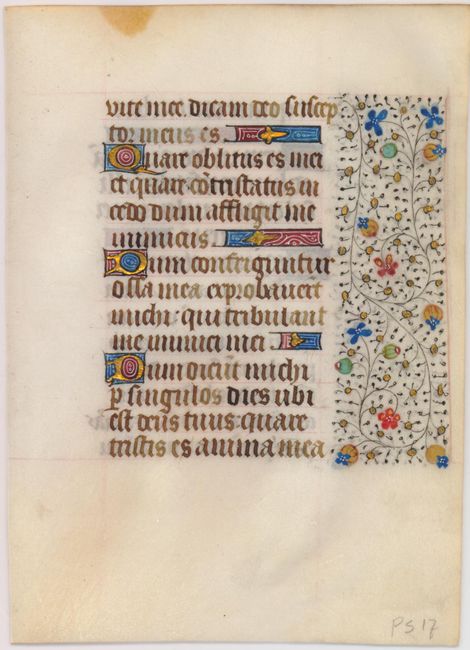 vite mee. dicam deo suscep
tor meus es
Quare oblitus es mei
et quare cõtristatus in
cedo dum affligit me
inimicus
Dum confringuntur
ossa mea exprobauerũt
michi: qui tribulant
me inimici mei
Dum dicũt michi
p̱ singulos dies ubi
est deus tuus: quare
tristis es anima mea
PS 17